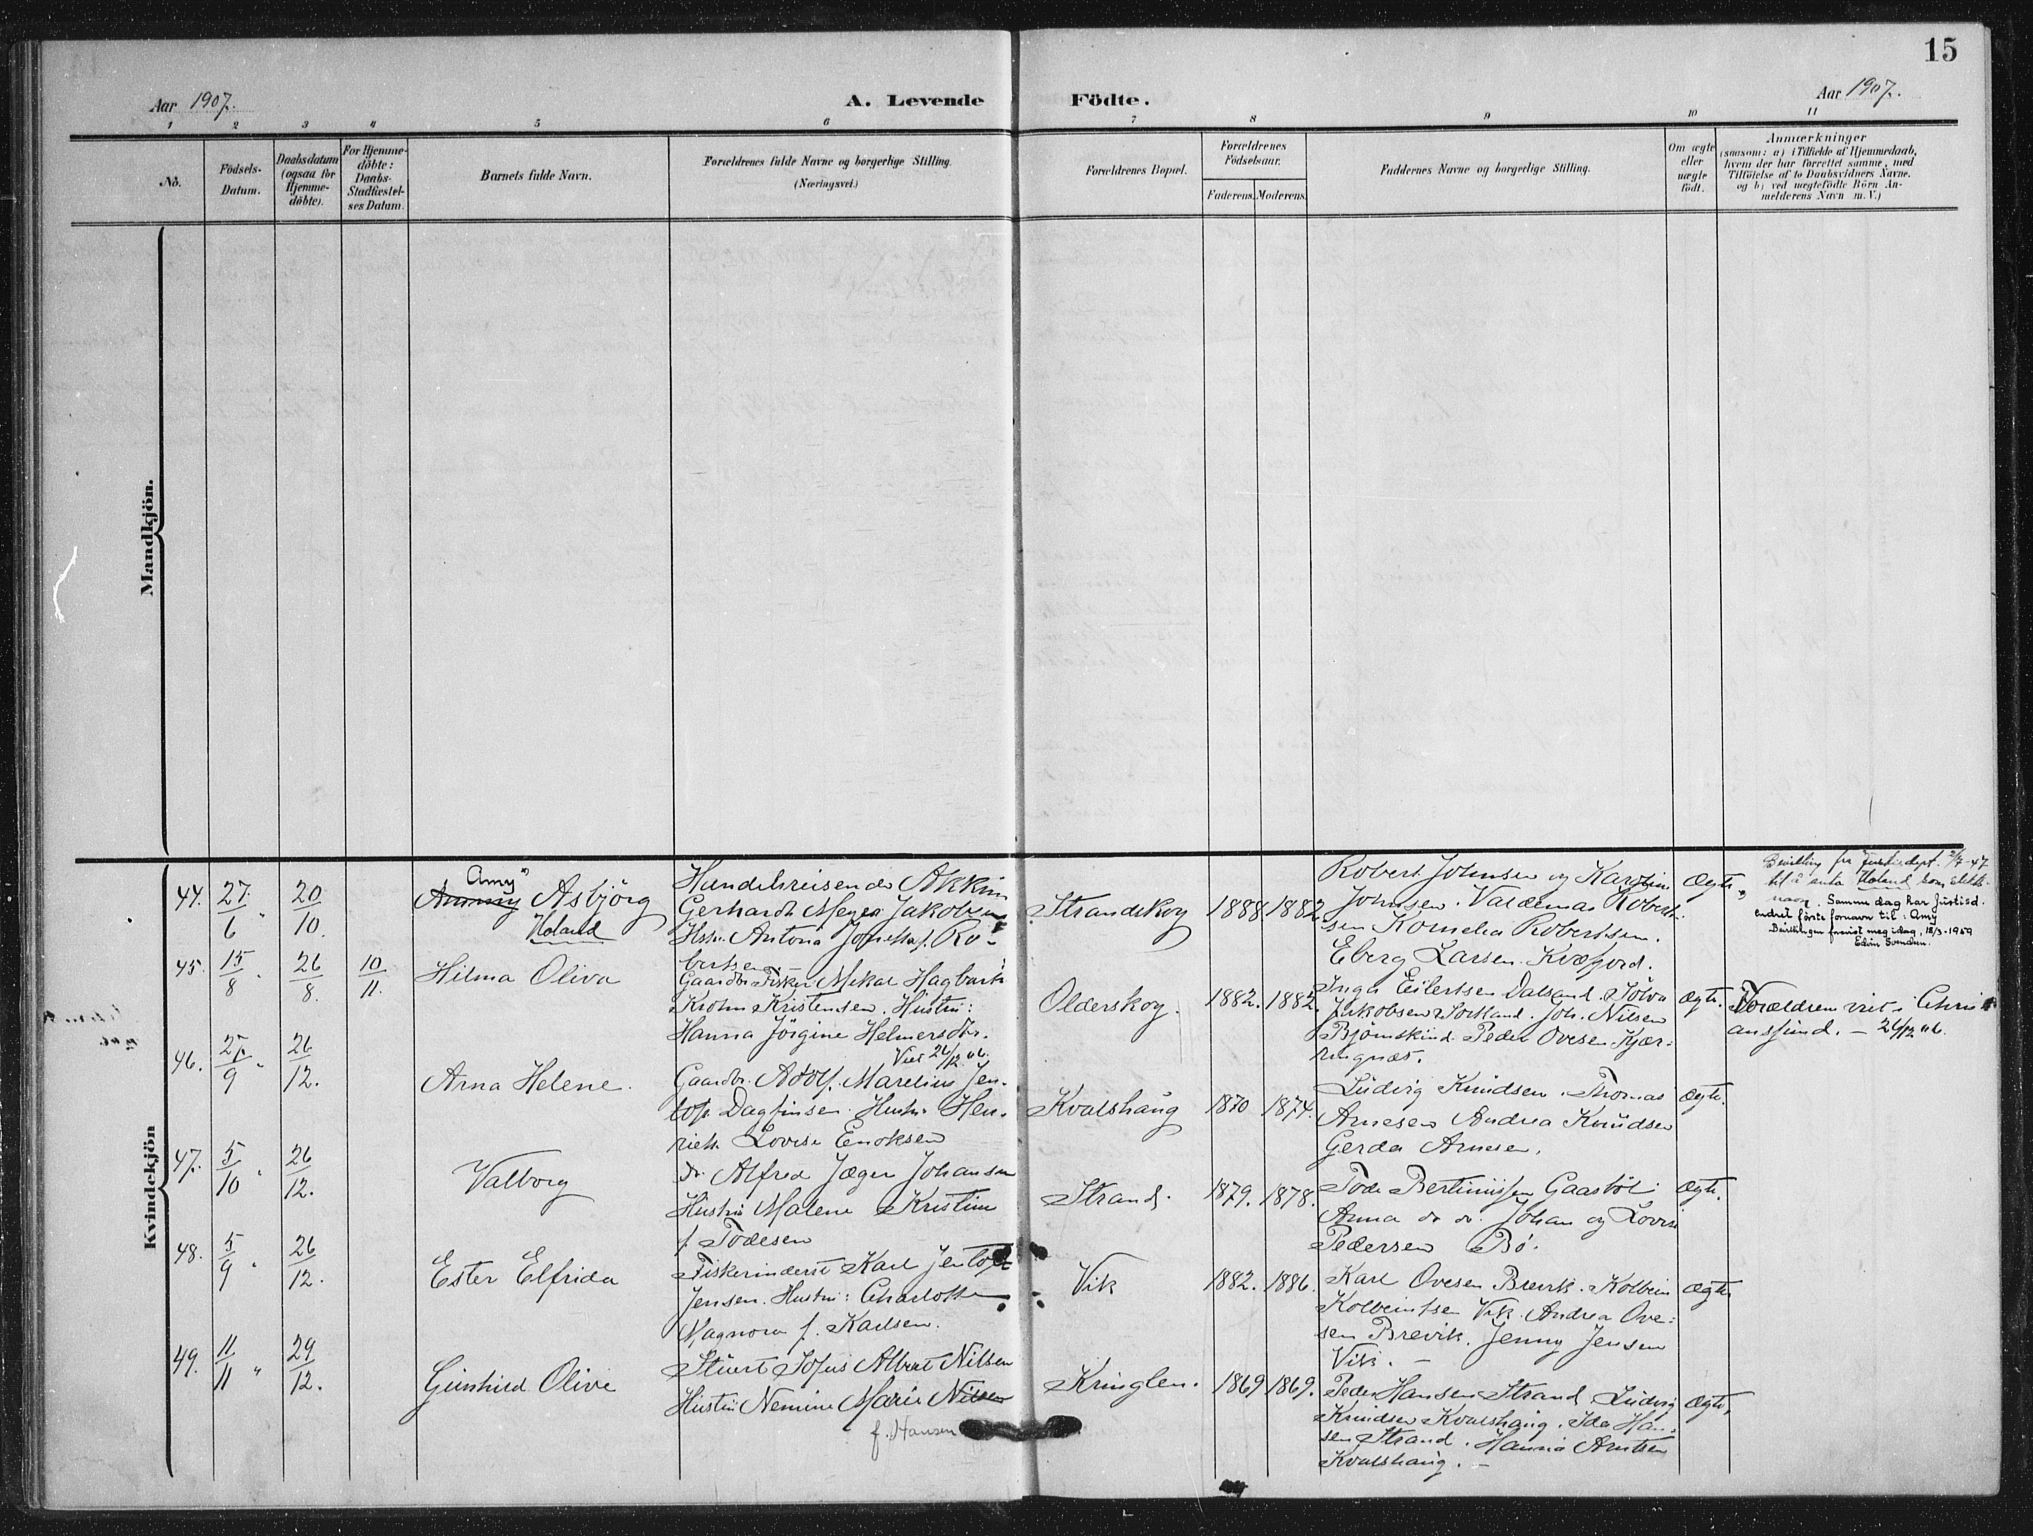 15
Aar 1907.
A. Levende Födte.
Aar 1907.
1 2 3 4 5 6 7 8 9 10 11
No.
Födsels-Datum.
Daabsdatum (ogsaa for Hjemme-döbte).
For Hjemme-döbte: Daabs-Stadfæstel-ses Datum.
Barnets fulde Navn.
Forældrenes fulde Navne og borgerlige Stilling.
(Næringsvei.)
Forældrenes Bopæl.
Forældrenes Födselsaar.
Faderens. Moderens.
Faddernes Navne og borgerlige Stilling.
Om ægte eller uægte födt.
Anmærkninger
(saasom: a) i Tilfælde af Hjemmedaab,
hvem der har forrettet samme, med
Tilföielse af to Daabsvidners Navne.
og b) ved uægtefödte Börn An-
melderens Navn m. V.)
Mandkjön.
Kvindekjön
44. 27/6 " 20/10.
Amy
Asbjörg
Holand
Handelsreisende
Gerhardt Meyer Jakobsen
Hstr. Antona f. Ro-
bertsen
Strandskog
1888 1882
Robert Johnsen og
Johnsen. Valdemar Robert-
sen Kornelia Robertsen.
Eberg Larsen. Kvæfjord.
Ægte
Bevilling fra Justisdept. 47
til å anta Holand som slekts-
navn. Samme dag har Justisd.
endret förste fornavn til: Amy
Bevillingen forevist meg idag, 18/3-1959
Edvin Svendsen.
45. 15/8 " 26/8. 10/11.
Hilma Oliva
Gaardbr. Fisker Mikal Hagbart
Krohn Kristensen. Hustru:
Hanna Jörgine Helmersdtr.
Viet 26/12 06.
Olderskog.
1882. 1882.
Inga Eilertsen
Jakobsen Sortland. Joh. Nilsen
Björnskind. Peder Ovesen Kjær-
ringnæs.
Ægte.
Forældrene viet i Christi
ansund. – 26/12 06.
46. 27/9 " 26/12.
Arna Helene.
Gaardbr. Adolf Marelius Jen-
tof Dagfinsen. Hustru Hen-
rikke Lovise Enoksen
Kvalshaug
1870 1874.
Ludvig Knudsen. Thomas
Arnesen Andrea Knudsen
Gerda Arnesen.
Ægte.
47. 5/10 " 26/12.
Valborg
do Alfred Jæger Johansen
Hustru Malene Kristine
f. Todesen
Strand.
1879. 1878.
Tode Gaasböl.
Anna do do. Johan og Lovise
Pedersen Bö.
Ægte.
48. 5/9 " 26/12.
Ester Elfrida
Fiskerinderst Karl Jentoft
Jensen. Hustru: Charlotte
Ragnora f. Karlsen.
Vik
1882. 1886.
Karl Ovesen Brevik. Kolbein
Kolbeinsen Vik. Andrea Ove-
sen Brevik. Jenny Jensen
Vik. –
Ægte
49. 11/11 " 29/12.
Gunhild Olive
Stuert Sofus Albert Nilsen
Hustru Nemine Marie Nilsen
f. Hansen
Kringlen.
1869 1869.
Peder Hansen Strand Ludvig
Knudsen Kvalshaug. Ida Han-
sen Strand. Hanna Arntsen
Kvalshaug. –
Ægte.